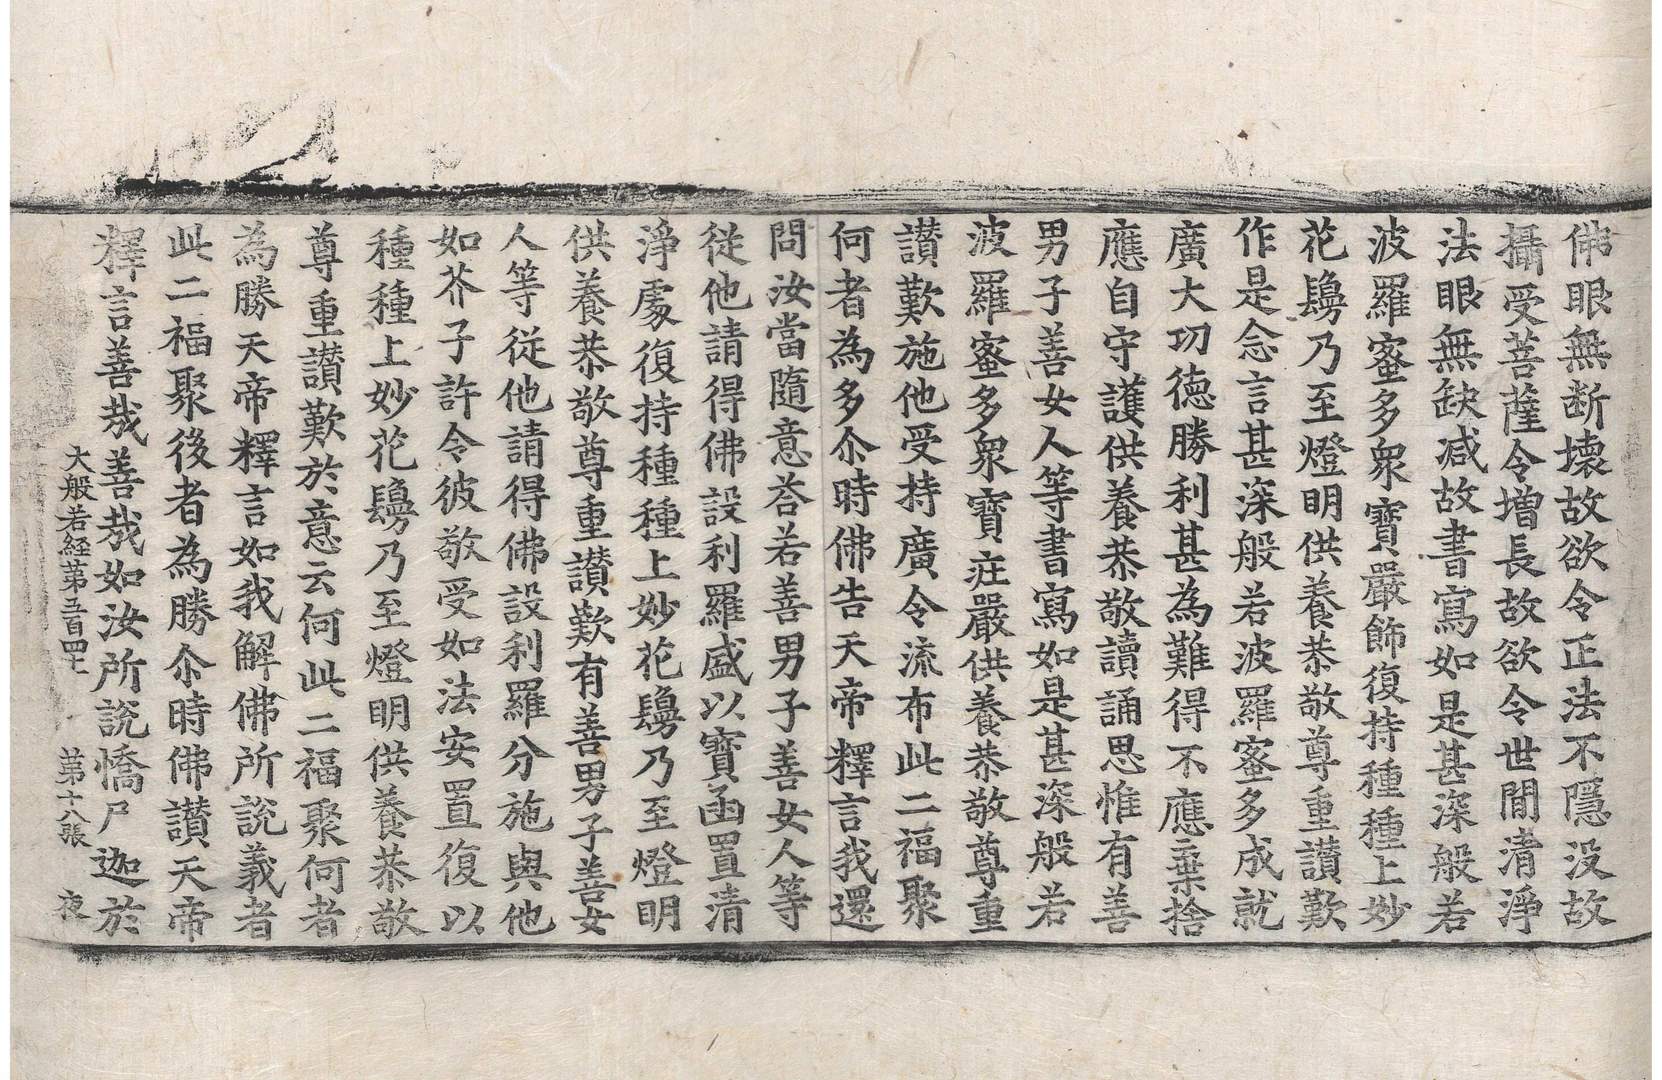 佛眼無断壞故欲令正法不隱没故
攝受菩薩令増長故欲令世間清淨
法眼無缺减故書寫如是甚深般若
波羅蜜多衆寶嚴飾復持種種上妙
花鬘乃至燈明供養恭敬尊重讃歎
作是念言甚深般若波羅蜜多成就
廣大功德勝利甚為難得不應棄捨
應自守護供養恭敬讀誦思惟有善
男子善女人等書寫如是甚深般若
波羅蜜多衆寶莊嚴供養恭敬尊重
讃歎施他受持廣令流布此二福聚
何者為多尒時佛告天帝釋言我還
問汝當隨意荅若善男子善女人等
従他請得佛設利羅盛以寶函置清
淨處復持種種上妙花鬘乃至燈明
供養恭敬尊重讃歎有善男子善女
人等従他請得佛設利羅分施與他
如芥子許令彼敬受如法安置復以
種種上妙花鬘乃至燈明供養恭敬
尊重讃歎於意云何此二福聚何者
為勝天帝釋言如我解佛所説義者
此二福聚後者為勝尒時佛讃天帝
釋言善哉善哉如汝所説憍尸迦於
大般若経第五百四十 第十八張 夜